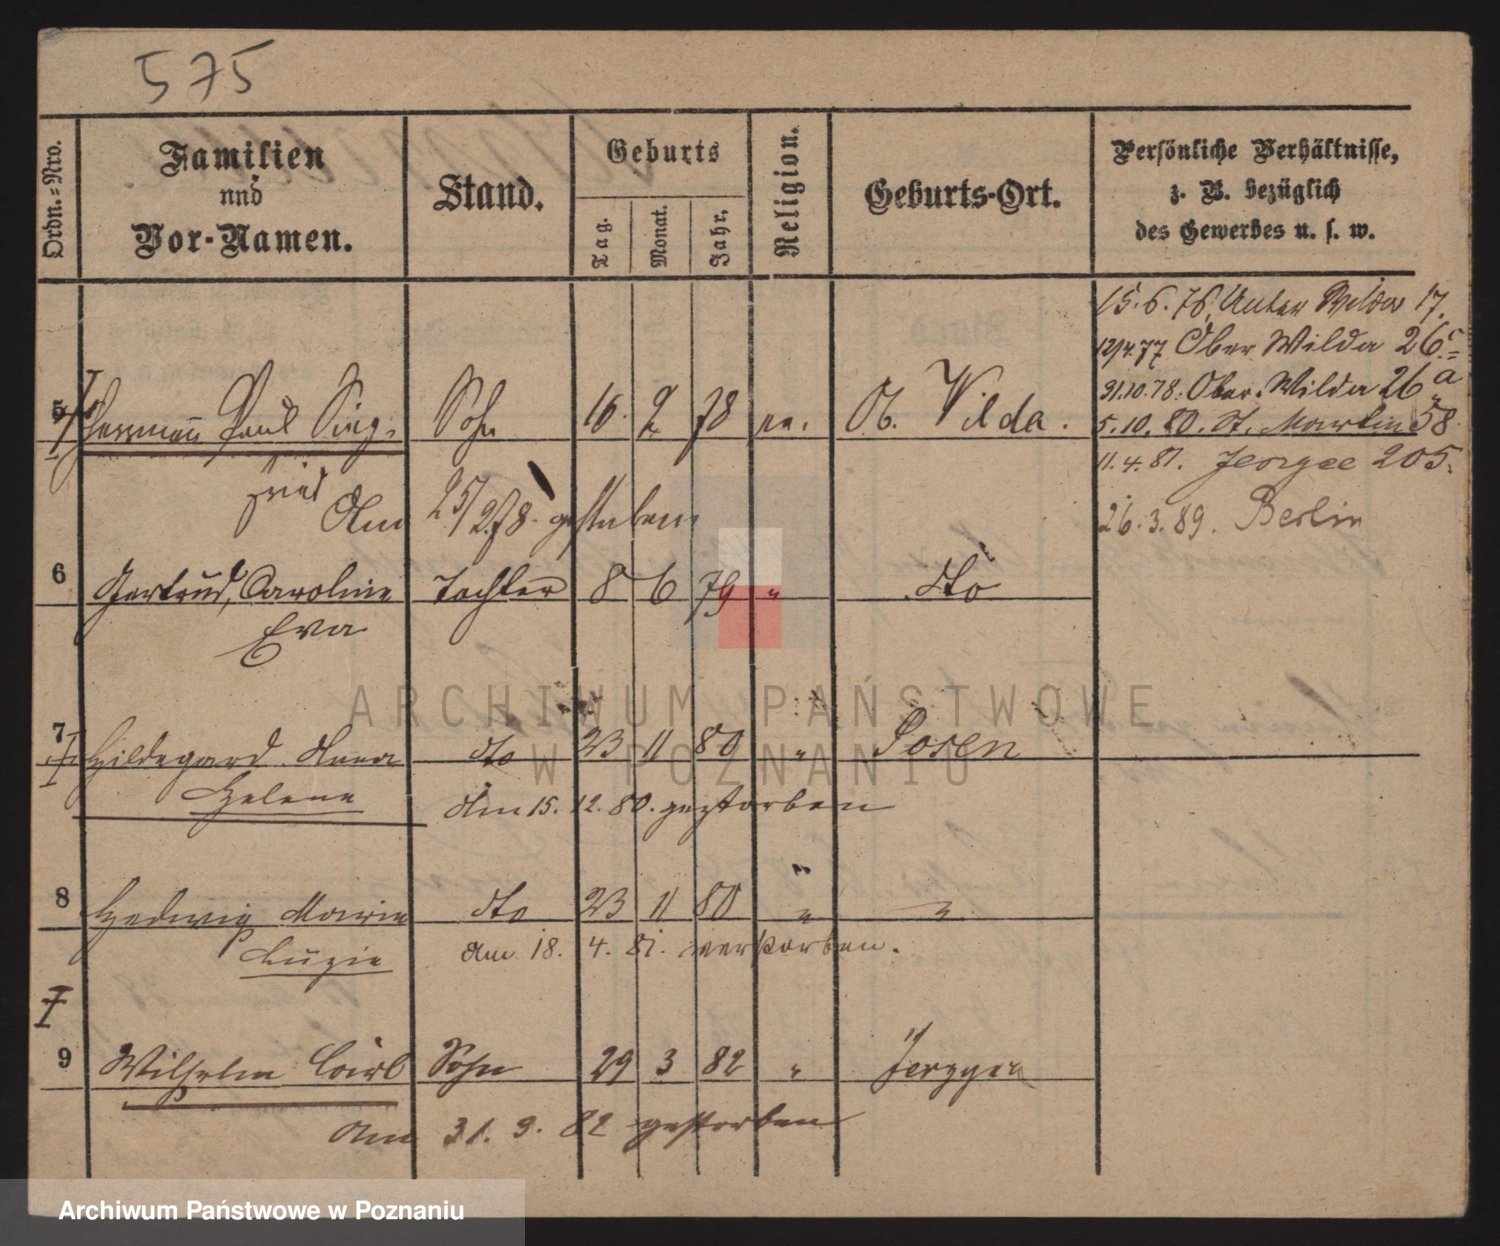 575
Ordn.=Nro.
Familien
und
Vor-Namen.
Stand.
Geburts
Tag.
Monat.
Jahr.
Religion.
Geburts-Ort.
Persönliche Verhältnisse,
z. B. bezüglich
des Gewerbes u. s. w.
15.6.76, Unter Wilda 17.
12/4.77 Ober Wilda 26c
31.10.78. Ober-Wilda 26a
5.10.80. St. Martin 58.
11.4.81. Jerzyce 205.
26.3.89. Berlin
5 Hermann Paul Sieg- Sohn 16. 2 78 ev. Ob. Wilda.
fried
Am 25/2.78. gestorben
6 Gertrud, Caroline Tochter 8 6 79 " dto
Eva
7 Hildegard Anna dto 23 11 80 " Posen
Helene Am 15. 12. 80. gestorben
8 Hedwig Marie dto 23 11 80 " "
Luzie Am 18. 4. 81. verstorben.
9 Wilhelm Carl Sohn 29 3 82 "
Am 31. 3. 82 gestorben
ARCHIWUM PAŃSTWOWE
W POZNANIU
Archiwum Państwowe w Poznaniu